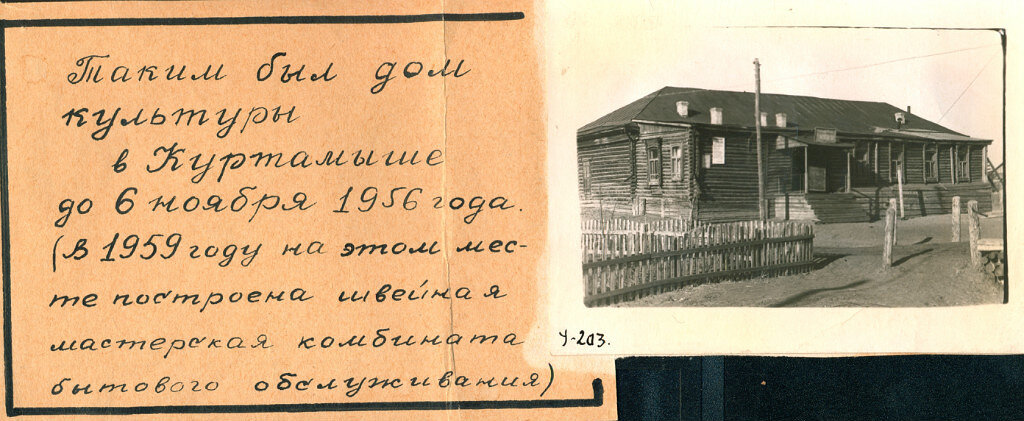 Таким был дом
культуры
в Куртамыше
до 6 ноября 1956 года.
(В 1959 году на этом мес-
те построена швейная
мастерская комбината
бытового обслуживания)
У-203.